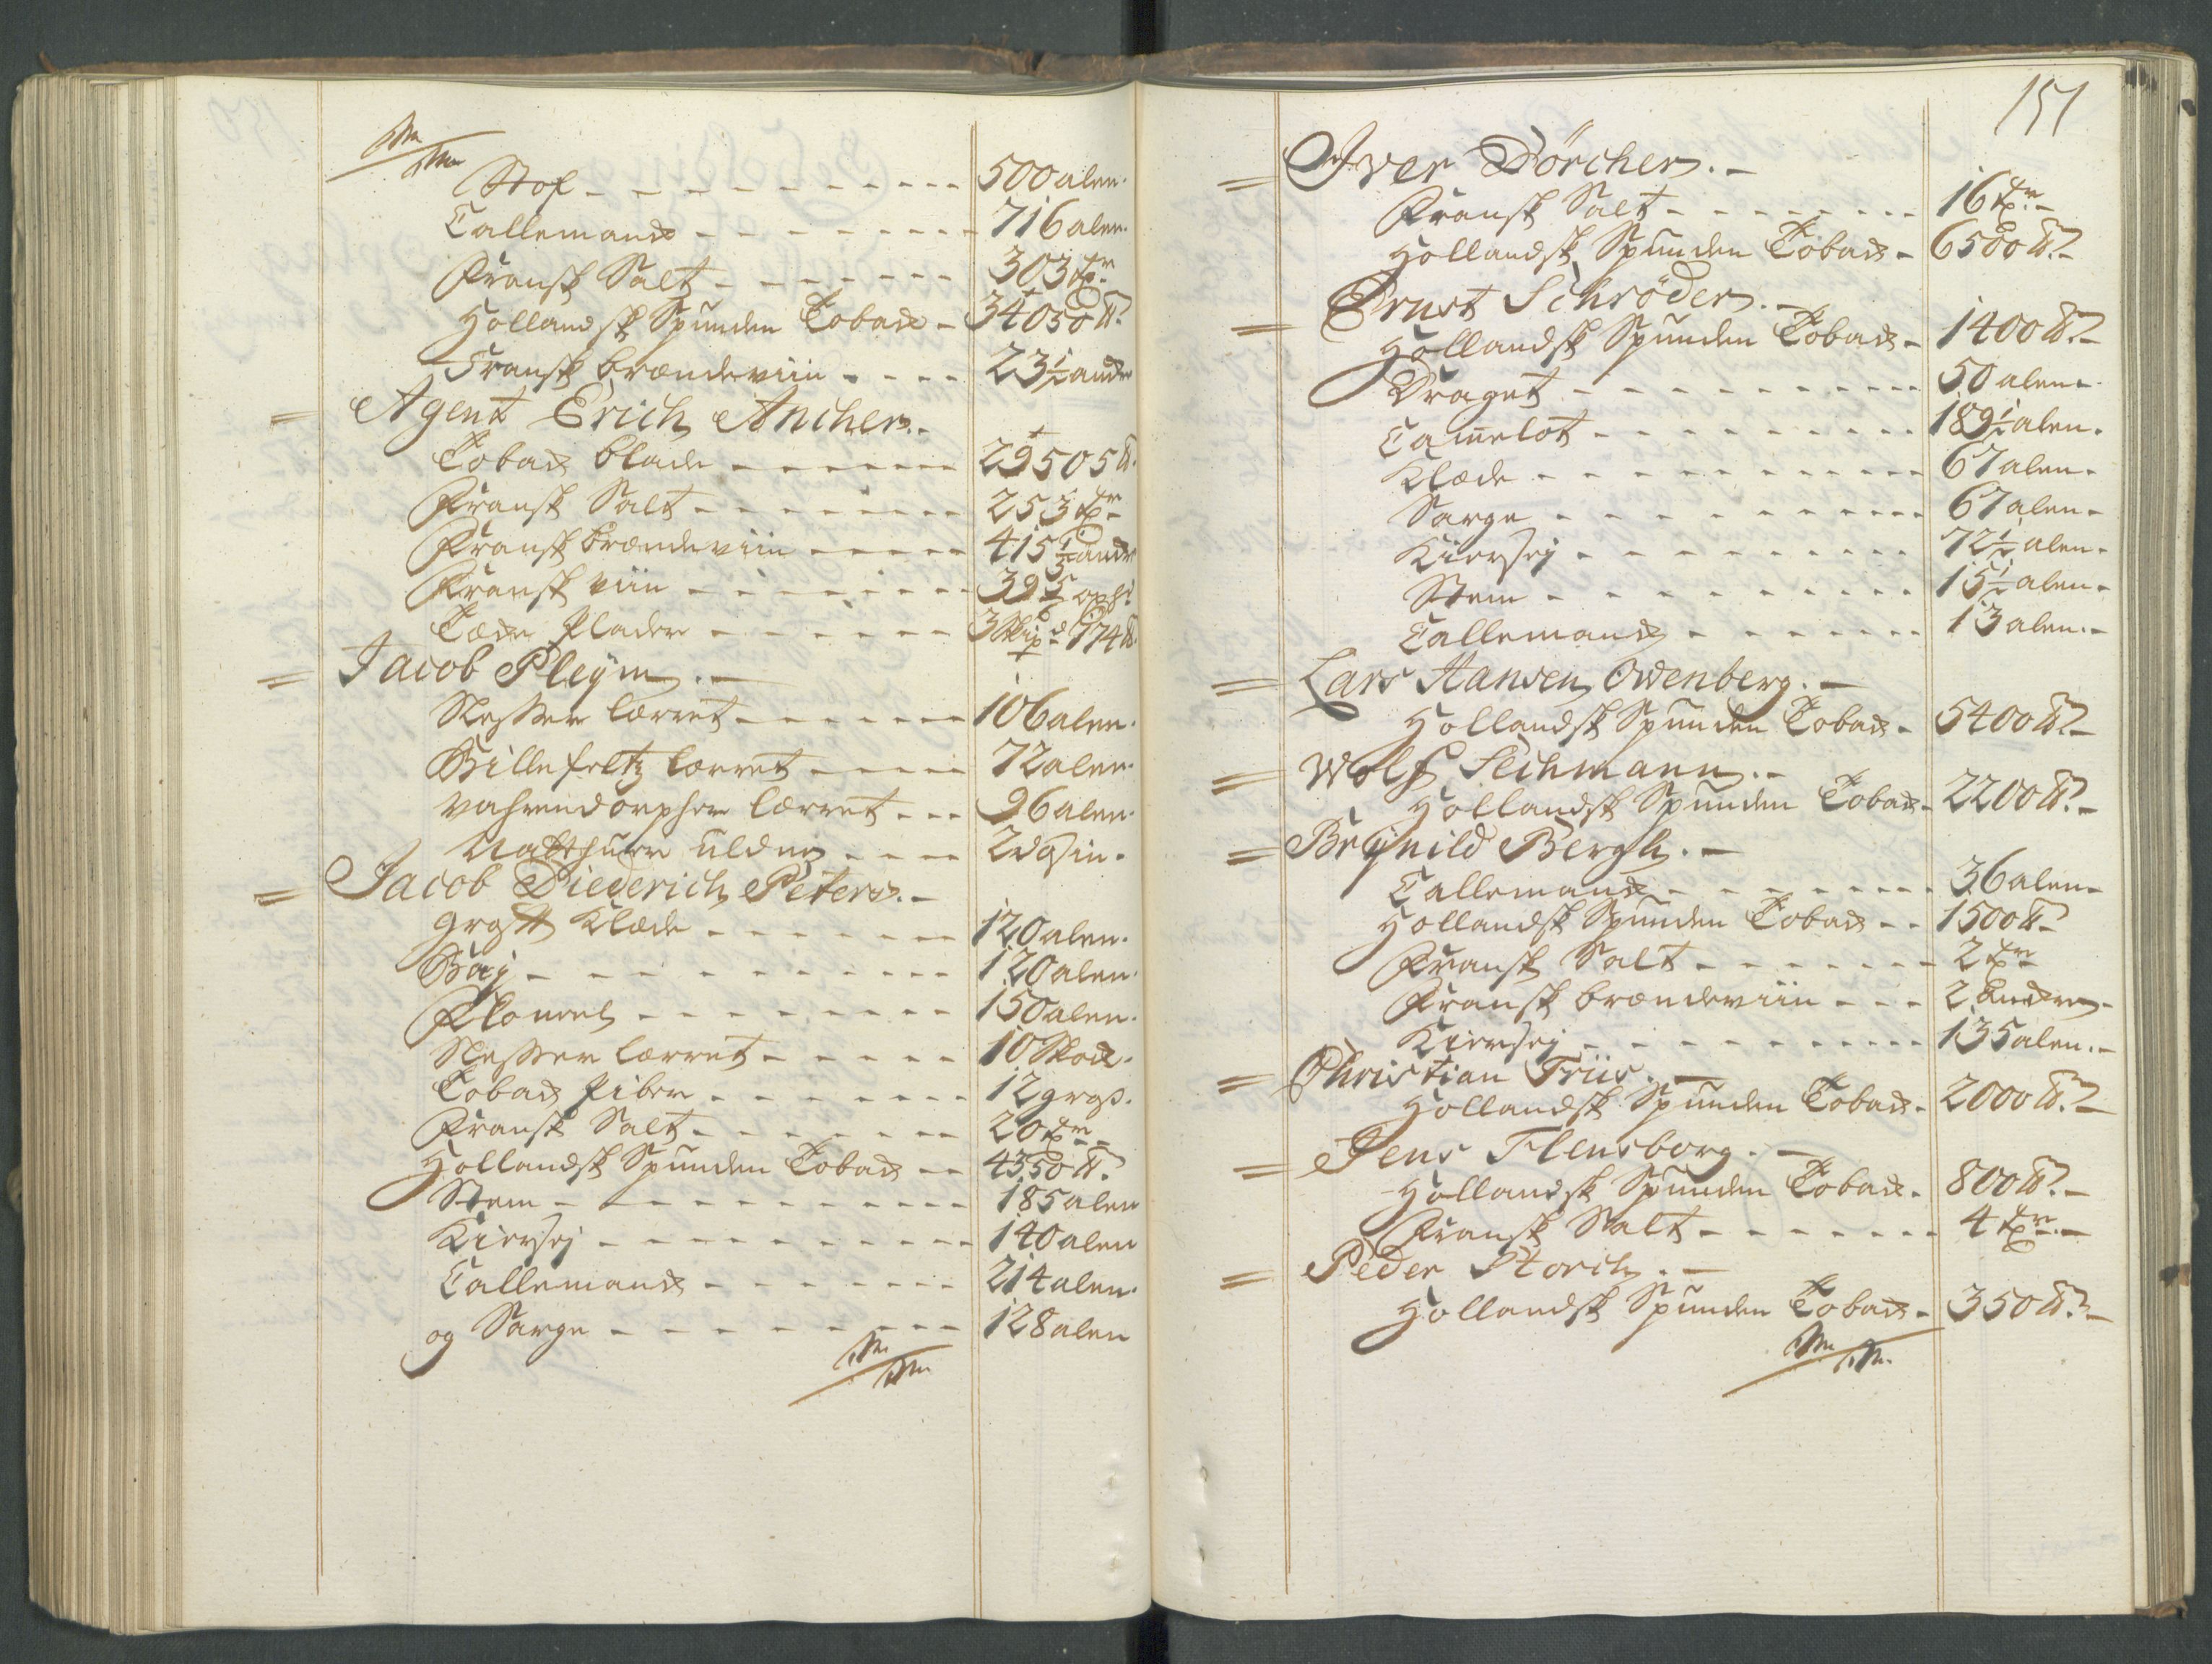 Stof 500 alen.
Callemanck 716 alen.
Fransk Salt 303 tr.
Hollandsk Spunden Toback 34050 ℔.
Fransk brændeviin 23½ anck
Agent Erich Ancher.
Toback blade 29505 ℔.
Fransk Salt 253 tr.
Fransk brændeviin 415½ anckr
Fransk viin 39 oxh.
Plader 3 Skip 174 ℔.
Jacob Pleÿm.
Nesser lærret 106 alen.
Billefeltz lærret 72 alen.
Vahrendorpher lærret 96 alen.
Natthuer uldne 2 dosin.
Jacob Diederich Peters.
groft Klæde 120 alen.
Baÿ 120 alen.
Flonel 150 alen.
Nesser lærret 10 Stock.
Toback Piber 12 gros.
Fransk Salt 20 tr.
Hollandsk Spunden Toback 4350 ℔.
Stem 185 alen
Kiersej 140 alen
Callemanck 214 alen.
og Sarge 128 alen
151
Iver Börcher.
Fransk Salt 16 tr.
Hollandsk Spunden Toback 6500 ℔.
Ernst Schröder.
Hollandsk Spunden Toback 1400 ℔.
Draget 50 alen.
Camelot 189½ alen.
Klæde 67 alen.
Sarge 67 alen.
Kiersej 72½ alen.
Stem 15½ alen.
Callemanck 13 alen.
Lars Hansen Owenberg.
Hollandsk Spunden Toback 5400 ℔.
Wolf Fechmann.
Hollandsk Spunden Toback 2200 ℔.
Brÿnild Bergh.
Callemanck 36 alen
Hollandsk Spunden Toback 1500 ℔.
Fransk Salt 2 tr
Fransk brændeviin 2 Ancker.
Kiersej 135 alen.
Christian Friis.
Hollandsk Spunden Toback 2000 ℔.
Jens Flensborg.
Hollandsk Spunden Toback 800 ℔.
Fransk Salt 4 tr.
Peder Storch.
Hollandsk Spunden Toback 350 ℔.